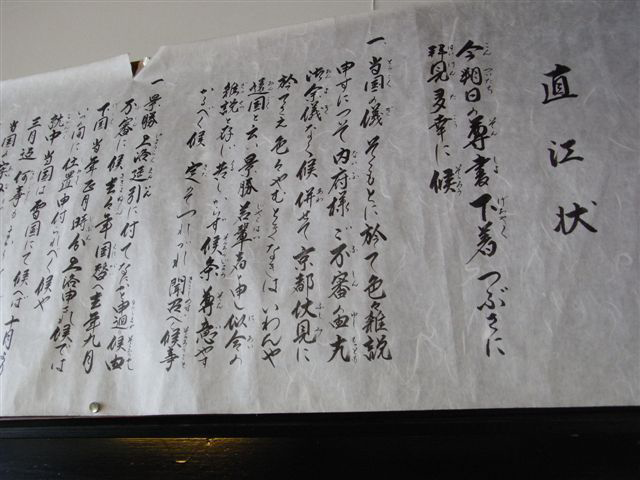 直江状
今朔日の尊書下着つぶさに
拝見多幸に候
一、当国の儀そこもとに於て色々雑説
申すにつき内府様ご不審の由尤
御余儀なく候併せて京都伏見に
於てさえ色々やむときなきはいわんや
遠国と云い景勝若輩者と申し似合の
雑説と存じ苦しからず候条尊意やす
かるべく候定そつれづれ聞召べく候事
一、景勝上洛延引に付てなにかと申廻候由
不審に候去々年国替へ去年九月
下国当年正月時分上洛申され候ては
いつの間に仕置申付られべく候や
就中当国は雪国にて候へば十月より
三月迄何事も
当国の